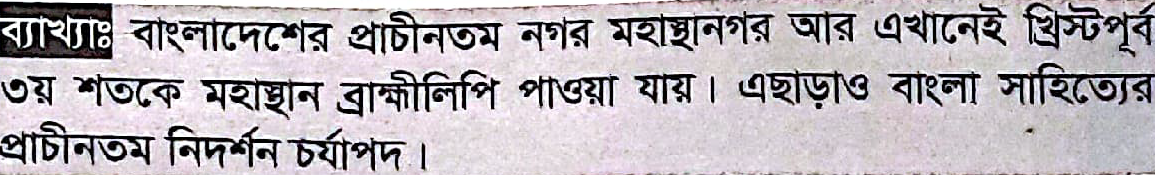 ব্যাখ্যাঃ বাংলাদেশের প্রাচীনতম নগর মহাস্থানগর আর এখানেই খ্রিস্টপূর্ব
৩য় শতকে মহাস্থান ব্রাহ্মীলিপি পাওয়া যায়। এছাড়াও বাংলা সাহিত্যের
প্রাচীনতম নিদর্শন চর্যাপদ।